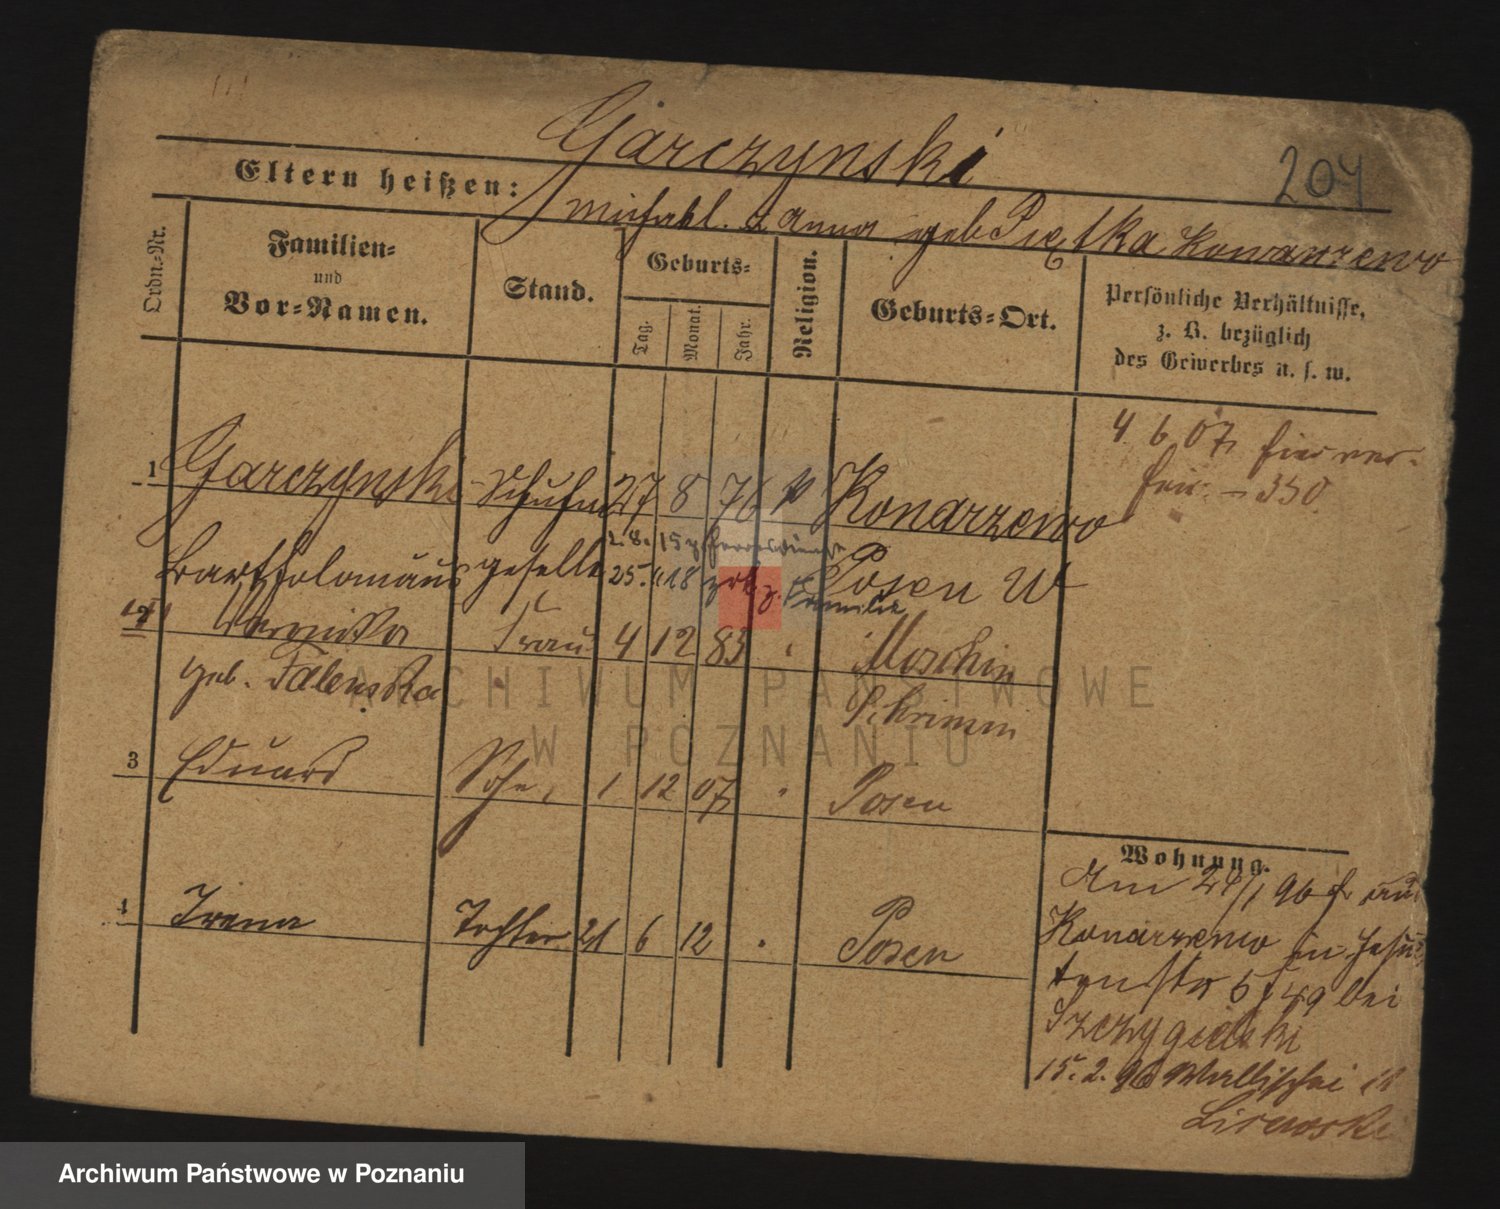 Garczynski
204
Eltern heißen:
Michael & Anna geb Piętka Konarzewo
Ordn.-Nr.
Familien-
und
Vor-Namen.
Stand.
Geburts-
Tag.
Monat.
Jahr.
Religion.
Geburts-Ort.
Persönliche Verhältnisse,
z. B. bezüglich
des Gewerbes u. s. w.
4 6 07
350
1 Garczynski Schuhm 27 8 76 k Konarzewo
Bartholomäus geselle Posen W
2. 8. 15
25. 11 18 z. Familie
Frau 4 12 83 " Moschin
geb. Falenska Schrimm
3 Eduard Sohn 1 12 07 " Posen
4 Irena Tochter 21 6 12 " Posen
Wohnung.
Am 24/1 96 fr aus
Konarzewo in Jesui
tenstr 5 bei
Szczygielski
15. 2. 96 Wallischei
ARCHIWUM PAŃSTWOWE
W POZNANIU
Archiwum Państwowe w Poznaniu